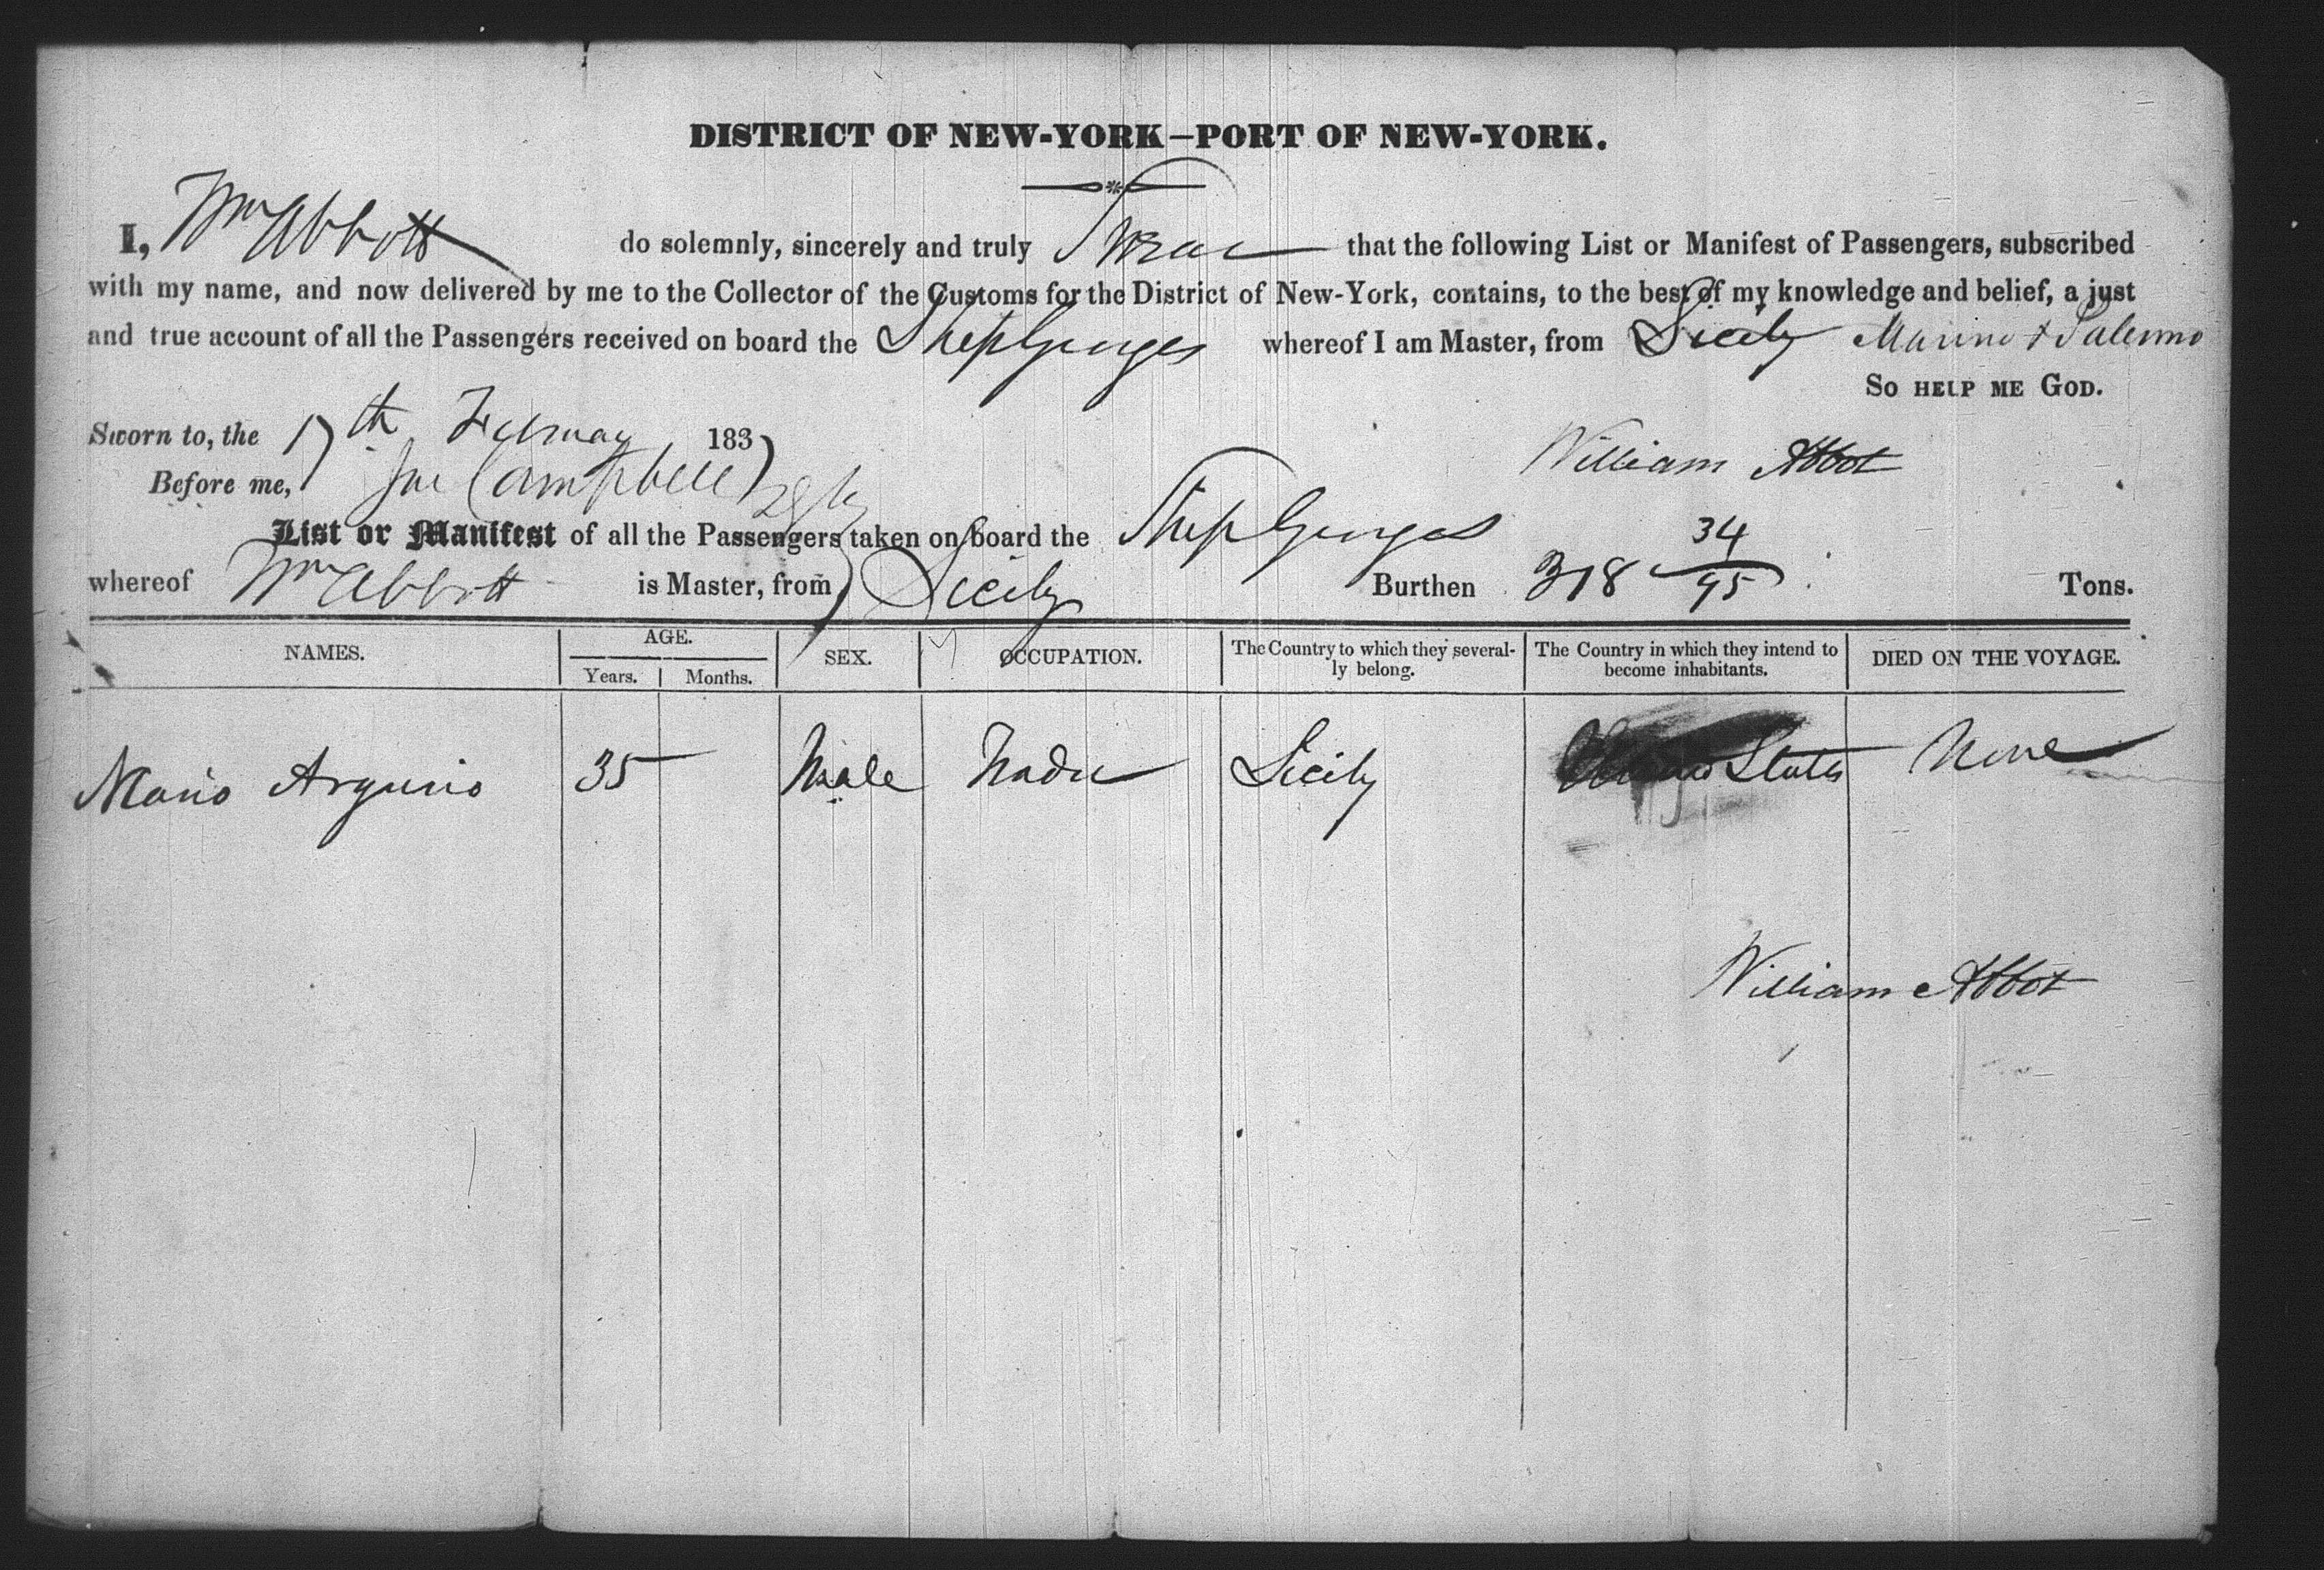 DISTRICT OF NEW-YORK—PORT OF NEW-YORK.
I, Wm Abbott do solemnly, sincerely and truly Swear that the following List or Manifest of Passengers, subscribed
with my name, and now delivered by me to the Collector of the Customs for the District of New-York, contains, to the best of my knowledge and belief, a just
and true account of all the Passengers received on board the Ship Ganges whereof I am Master, from Sicily & Palermo
SO HELP ME GOD.
Sworn to, the 17th February 1837
Before me, Campbell
William Abbot
List or Manifest of all the Passengers taken on board the Ship Ganges
whereof Wm Abbott is Master, from Sicily Burthen 318 34/95 Tons.
NAMES. AGE. Years. Months. SEX. OCCUPATION. The Country to which they severally belong. The Country in which they intend to become inhabitants. DIED ON THE VOYAGE.
Mario 35 Male Sicily States None
William Abbot